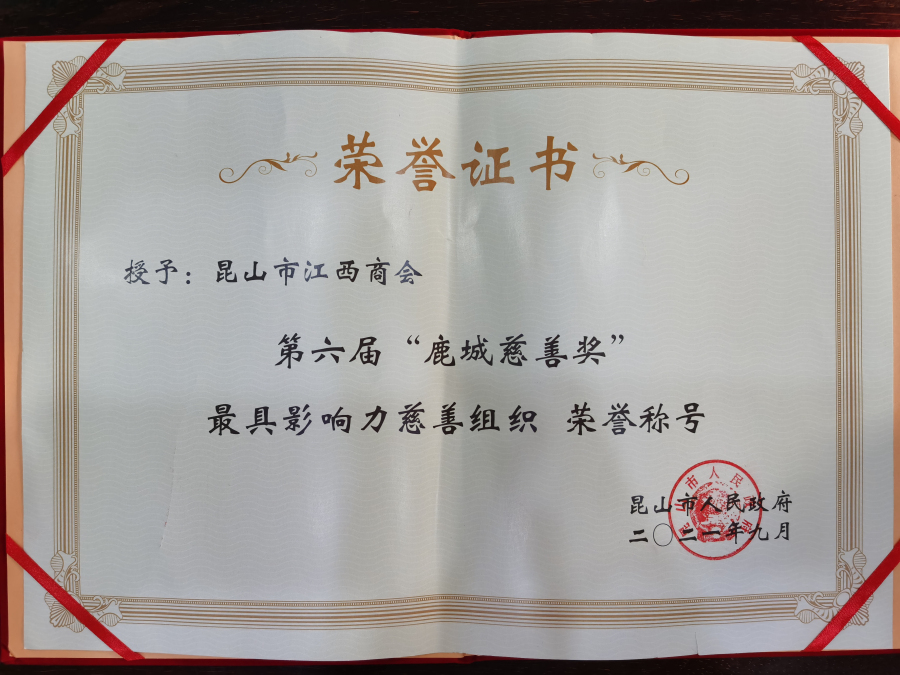 荣誉证书
授予：昆山市江西商会
第六届“鹿城慈善奖”
最具影响力慈善组织 荣誉称号
昆山市人民政府
二〇二一年九月